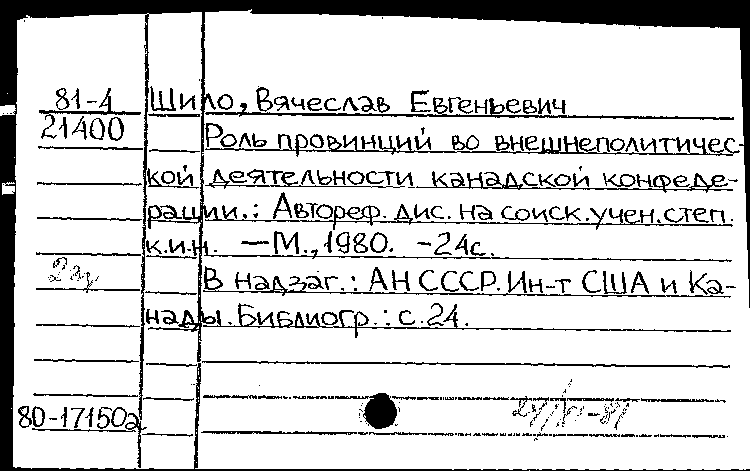 81-4 Шило, Вячеслав Евгеньевич
21400 Роль провинций во внешнеполитичес-
кой деятельности канадской конфеде-
рации.: Автореф. дис. на соиск. учен. степ.
к.и.н. — М., 1980. - 24с.
В надзаг.: АН СССР. Ин-т США и Ка-
нады. Библиогр.: с. 24.
80-17150а